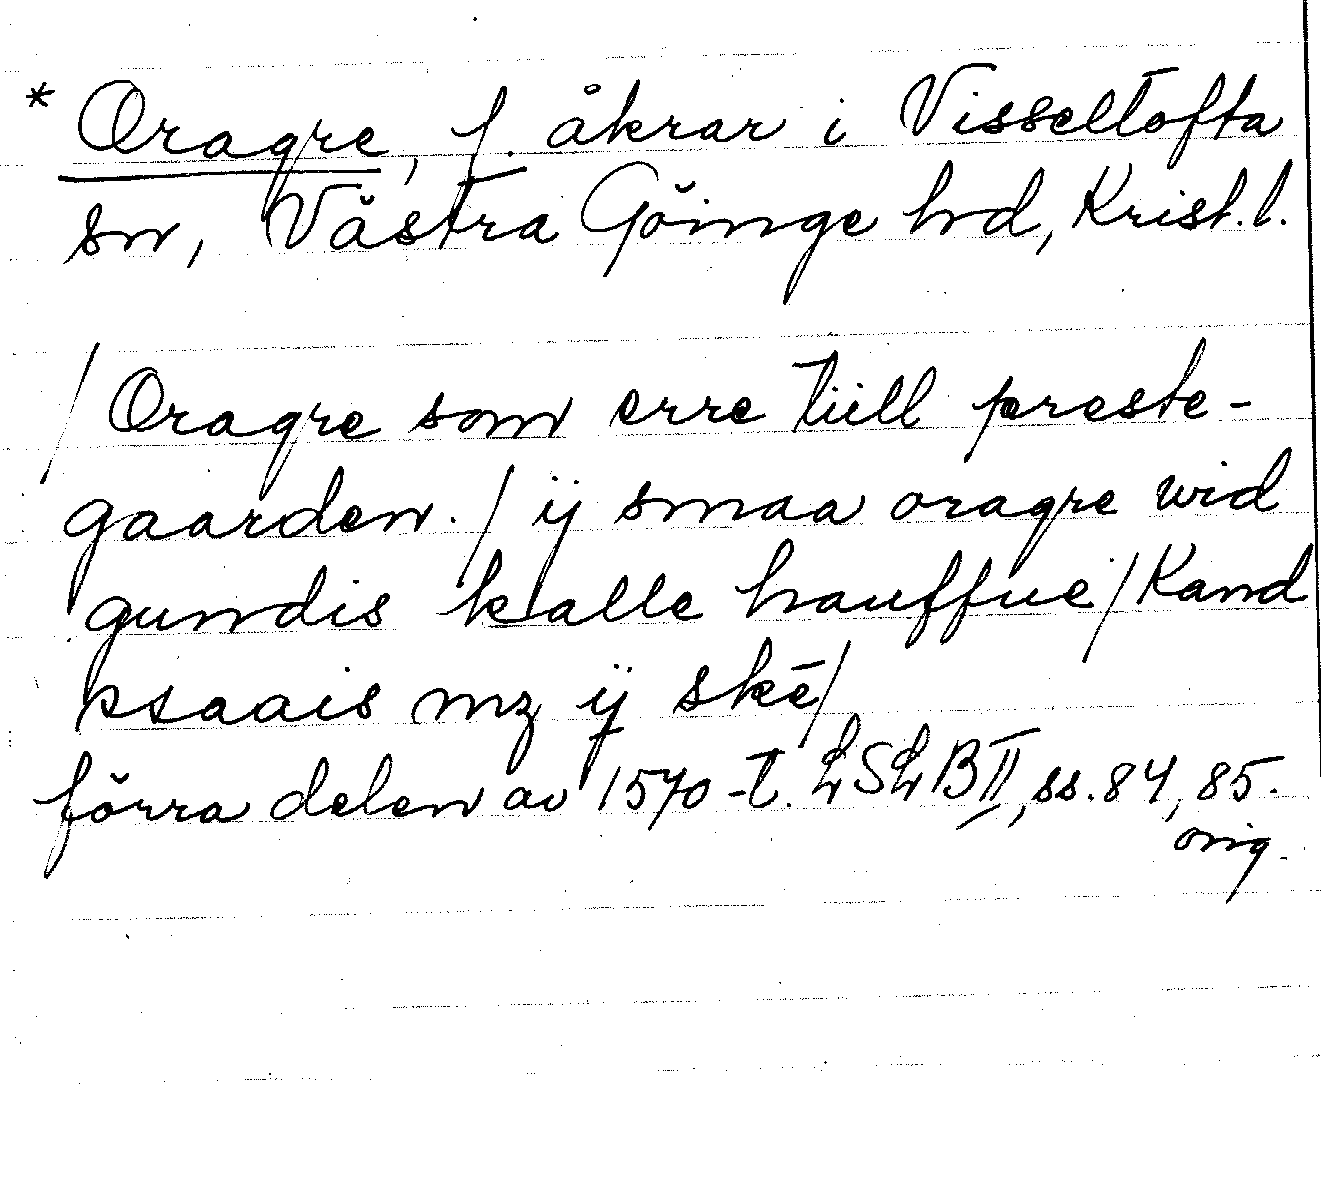 * Oragre, f. åkrar i Visseltofta
sn, Västra Göinge hd, Krist. l.
/ Oragre som erre tiill preste-
gaarden. / ij smaa oragre wid
gundis kalle hauffue / Kand
psaais mz ij skē /
förra delen av 1570-t. LSLB II, ss. 84, 85.
orig.